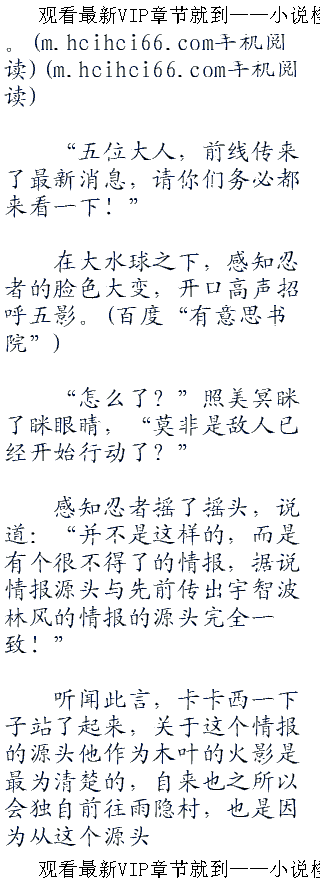 观看最新VIP章节就到——小说检
。(m.hcihci66.com手机阅
读)(m.hcihci66.com手机阅
读)
“五位大人，前线传来
了最新消息，请你们务必都
来看一下！”
在大水球之下，感知忍
者的脸色大变，开口高声招
呼五影。(百度“有意思书
院”)
“怎么了？”照美冥眯
了眯眼睛，“莫非是敌人已
经开始行动了？”
感知忍者摇了摇头，说
道：“并不是这样的，而是
有个很不得了的情报，据说
情报源头与先前传出宇智波
林风的情报的源头完全一
致！”
听闻此言，卡卡西一下
子站了起来，关于这个情报
的源头他作为木叶的火影是
最为清楚的，自来也之所以
会独自前往雨隐村，也是因
为从这个源头
观看最新VIP章节就到——小说